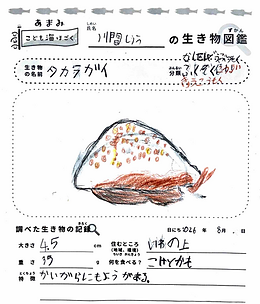 あまみ
こども海はごく
しめい
氏名
川間しう
の生き物図鑑
ずかん
生き物
の名前
タカラガイ
ぶんるい
分類
調べた生き物の記録
きろく
日にち 2026年 8月, 日
大きさ 4.5 cm
住むところ
(地域、環境)
ちいき かんきょう
いわの上
重さ 39 g
何を食べる?
こけとかも
とくちょう
特徴
かいがらにもようがある。